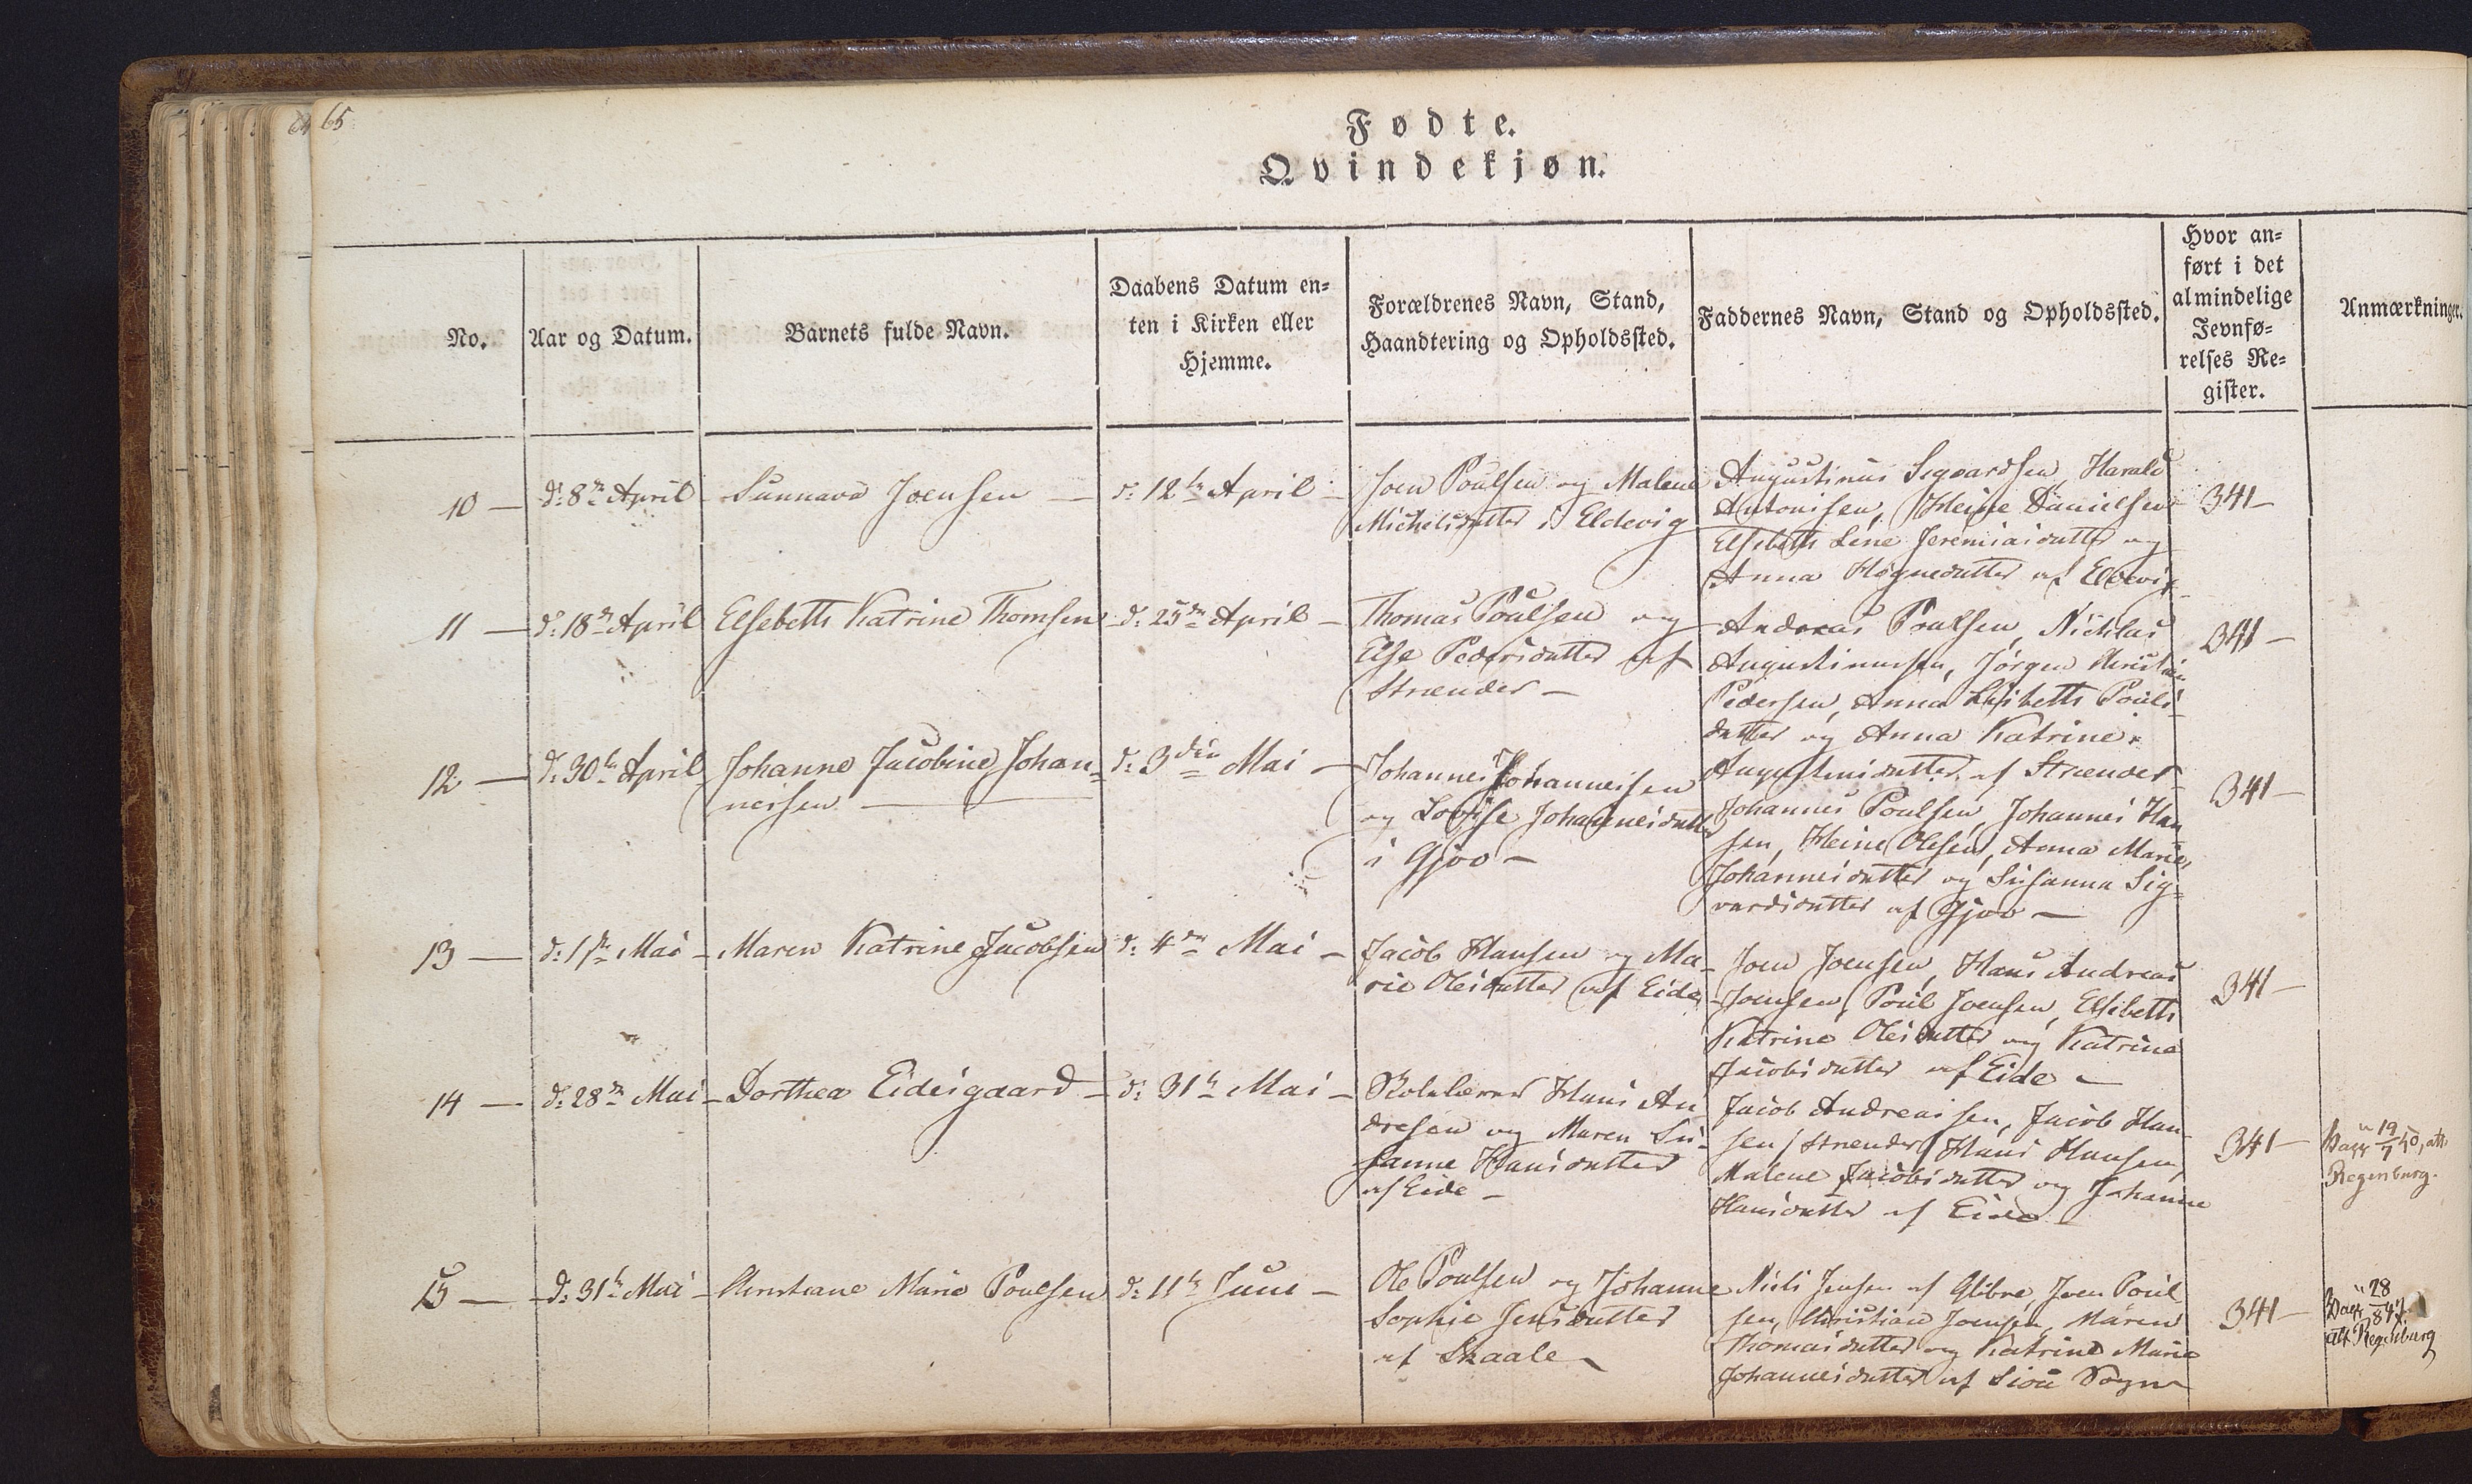 65
Fødte.
Qvindekjøn.
No.
Aar og Datum.
Barnets fulde Navn.
Daabens Datum en-
ten i Kirken eller
Hjemme.
Forældrenes Navn, Stand,
Haandtering og Opholdssted.
Faddernes Navn, Stand og Opholdssted.
Hvor an-
ført i det
almindelige
Jevnfø-
relses Re-
gister.
Anmærkninger.
10 —
d: 8de April
Sunnava Joensen —
d: 12te April
Joen Poulsen og Malene
Michelsdatter i Eldevig
Augustinus Sigvardsen, Harald
Antonisen, Heine Danielsen
Elsebeth Lene Jeremiasdatter og
Anna Høgnedatter af Eldevig
341 —
11 —
d: 18de April
Elsebeth Katrine Thomsen
d: 25de April —
Thomas Poulsen og
Else Pedersdatter af
Strænder —
Andreas Poulsen, Nicklas
Augustinussen, Jörgen Christian
Pedersen, Anna Elsebeth Pouls-
datter og Anna Katrine
Augustinsdatter af Strænder
341 —
12 —
d: 30te April
Johanne Jacobine Johan-
nessen —
d: 3die Mai —
Johannes Johannesen
og Lovise Johannesdatter
i Gjov —
Johannes Poulsen, Johannes Han
sen, Heine Olesen, Anna Marie
Johannesdatter og Susanna Sig-
vardsdatter af Gjov —
341 —
13 —
d: 1ste Mai —
Maren Katrine Jacobsen
d: 4de Mai —
Jacob Hansen og Ma-
rie Olesdatter af Eide
Joen Joensen, Hans Andreas
Joensen, Poul Joensen, Elsebeth
Katrine Olesdatter og Katrine
Jacobsdatter af Eide —
341 —
14 —
d: 28de Mai —
Dorthea Eidesgaard —
d: 31te Mai —
Skolelærer Hans An-
dresen og Maren Su-
sanne Hansdatter
af Eide —
Jacob Andreasen, Jacob Han
sen / Strænder / Hans Hansen,
Malene Jacobsdatter og Johanne
Hansdatter af Eide
341 —
19/7 50, att.
Regenburg.
15 —
d: 31te Mai —
Christiane Marie Poulsen
d: 11te Juni —
Ole Poulsen og Johanne
Sophie Jensdatter
af Skaale
Niels Jensen af Glibre, Joen Poul
sen, Christian Joensen, Maren
Thomasdatter og Katrine Marie
Johannesdatter af Siou Sogn
341 —
28/8 47
att. Regenburg